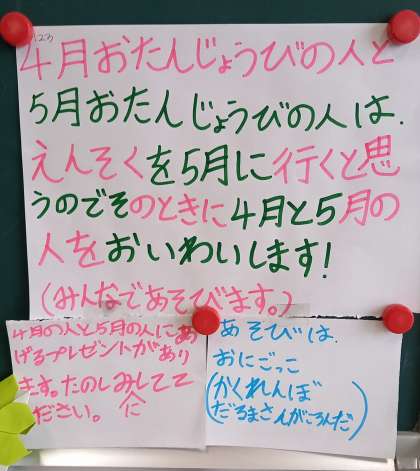 4/23
4月おたんじょうびの人と
5月おたんじょうびの人は.
えんそくを5月に行くと思
うのでそのときに4月と5月の
人をおいわいします!
(みんなであそびます。)
4月の人と5月の人にあ
げるプレゼントがあり
ます。たのしみしてて
に
ださい。
あそびは.
おにごっこ
(かくれんぼ
だるまさんがころんだ)